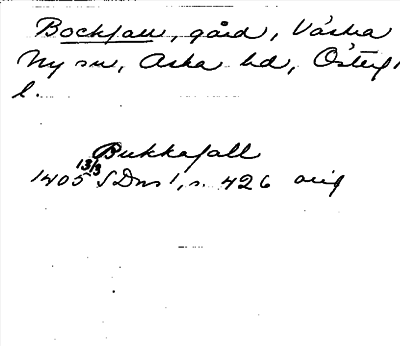 Bockfall, gård, Västra
Ny sn, Aska hd, Österg
l.
Bukkafall
1405 13/3 SDns 1, s. 426 orig